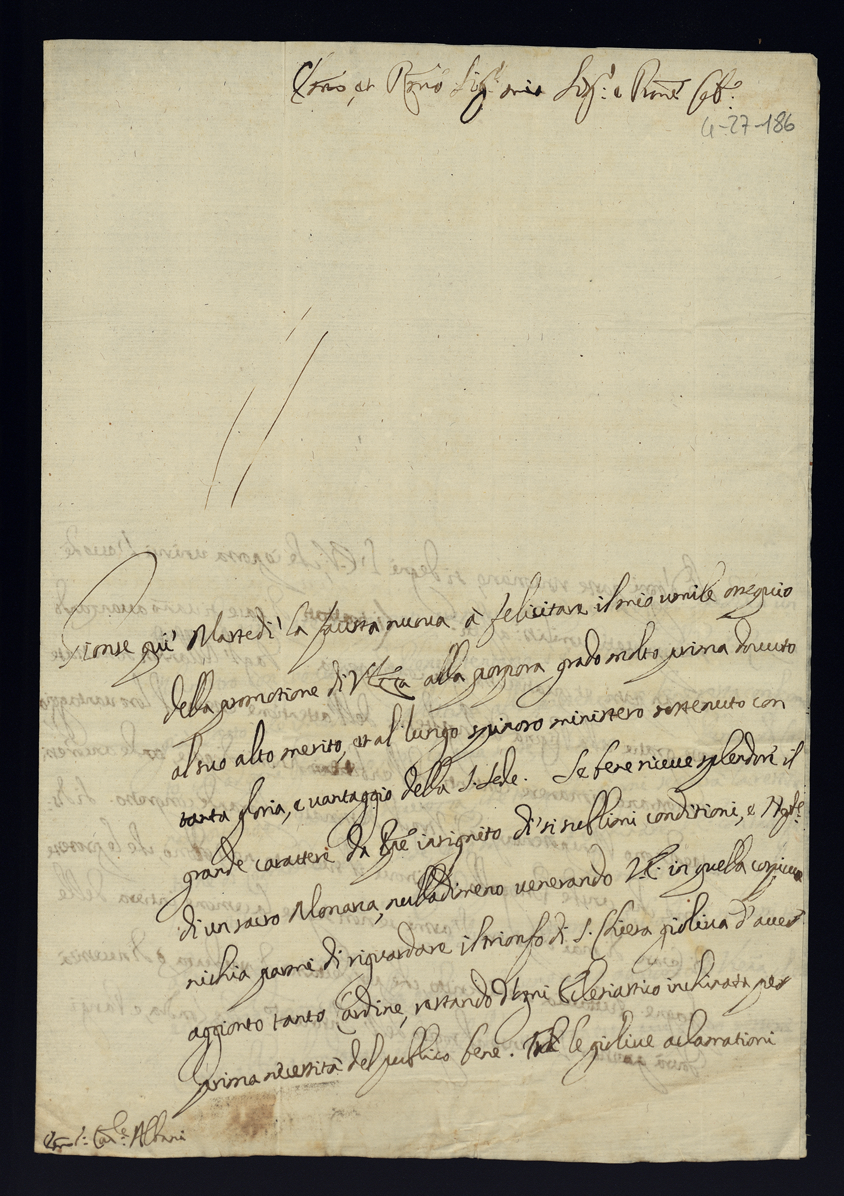 Em̃o, et Rm̃o Sig.r mio Sig.r e Pron̄e Col.mo
4-27-186
Gionse quì Martedì la fausta nuova à felicitare il mio umile ossequio
della promotione di V. Em.za alla porpora grado molto prima dovuto
al suo alto merito, et al lungo spinoso ministero sostenuto con
tanta gloria, e vantaggio della S. Sede. Se bene riceve splendore il
grande carattere da insignito di sì sublimi conditioni, e
di un sacro Monarca, nulladimeno venerando V. E. in quella cospicua
nichia parmi di riguardare il trionfo di S. Chiesa gioliva d'aver
aggionto tanto Cardine, restando Ecclesiastico inchinata per
prima necessità del publico bene. le giolive aclamationi
Em̃o S.r Car.le Albani